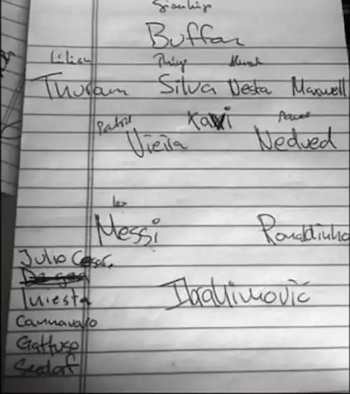 Gianluigi
Buffon
Lilian Thiago Alessandro
Thuram Silva Nesta Maxwell
Patrick Xavi Pavel
Vieira Nedved
Leo
Messi Ronaldinho
Julio Cesar
Iniesta Ibrahimovic
Cannavaro
Gattuso
Seedorf